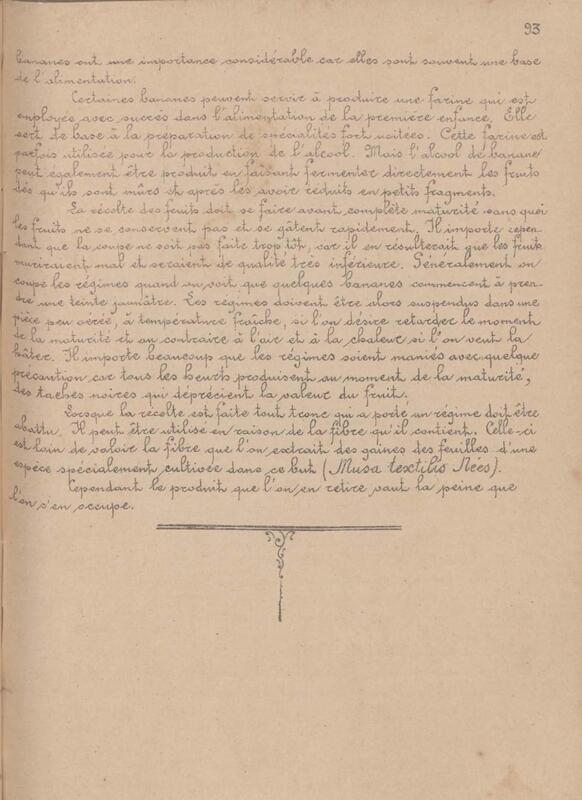 93
bananes ont une importance considérable car elles sont souvent une base
de l'alimentation.
Certaines bananes peuvent servir à produire une farine qui est
employée avec succès dans l'alimentation de la première enfance. Elle
sert de base à la préparation de spécialités fort usitées. Cette farine est
parfois utilisée pour la production de l'alcool. Mais l'alcool de banane
peut également être produit en faisant fermenter directement les fruits
dès qu'ils sont mûrs et après les avoir réduits en petits fragments.
La récolte des fruits doit se faire avant complète maturité sans quoi
les fruits ne se conservent pas et se gâtent rapidement. Il importe cepen-
dant que la coupe ne soit pas faite trop tôt, car il en résulterait que les fruits
muriraient mal et seraient de qualité très inférieure. Généralement on
coupe les régimes quand on voit que quelques bananes commencent à pren-
dre une teinte jaunâtre. Les régimes doivent être alors suspendus dans une
pièce peu aérée, à température fraîche, si l'on désire retarder le moment
de la maturité et au contraire à l'air et à la chaleur si l'on veut la
hâter. Il importe beaucoup que les régimes soient maniés avec quelque
précaution car tous les heurts produisent au moment de la maturité,
des taches noires qui déprécient la valeur du fruit.
Lorsque la récolte est faite tout tronc qui a porté un régime doit être
abattu. Il peut être utilisé en raison de la fibre qu'il contient. Celle-ci
est loin de valoir la fibre que l'on extrait des gaines des feuilles d'une
espèce spécialement cultivée dans ce but (Musa textilis Nées).
Cependant le produit que l'on en retire vaut la peine que
l'on s'en occupe.